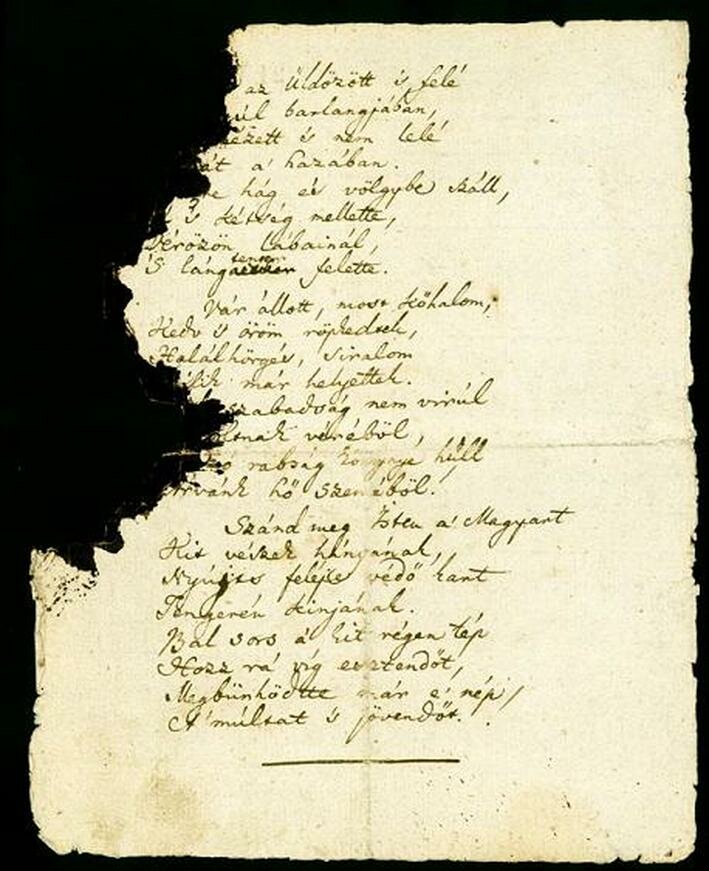 az Üldözött is felé
barlangjában,
nem lelé
a' hazában.
hág és völgybe száll,
is kétség mellette,
Vérözön lábainál,
'S lángtenger felette.
Vár állott, most kőhalom,
Kedv és öröm röpkedtek,
Halálhörgés, siralom
már helyettek.
szabadság nem virúl
véréből,
rabság könnye hull
hő szeméből.
Szánd meg Isten a' Magyart
Kit vészek hányának,
Nyújts feléje védő kart
Tengerén kínjának.
Bal sors a' kit régen tép
Hozz rá víg esztendőt,
Megbünhödte már e' nép
A' múltat 's jövendőt.